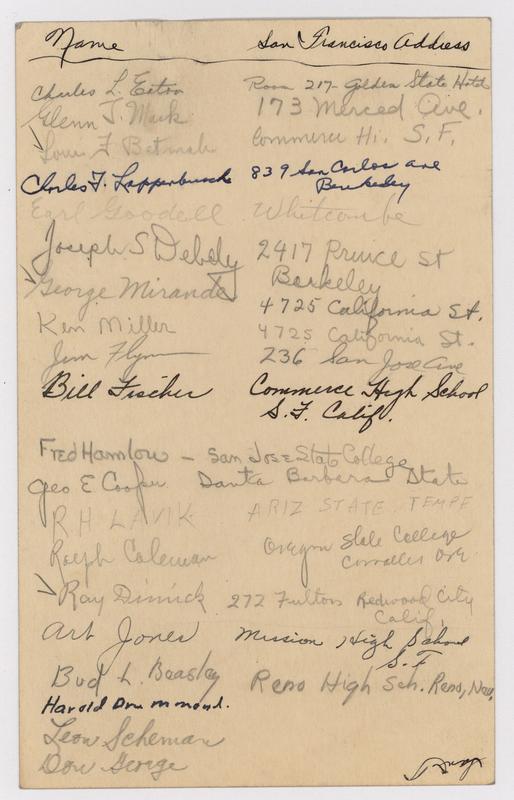 Name San Francisco Address
Charles L. Eaton Room 217- Golden State Hotel
Glenn T. Mark 173 Merced Ave.
Louis F Commerce Hi. S.F.
Charles F. Lappenbusch 839 San Carlos ave
Berkeley
Earl Goodell Whitcombe
Joseph S Debely 2417 Prince St
Berkeley
George Miranda 4725 California St.
Ken Miller 4725 California St.
Jim Flynn 236 San Jose Ave
Bill Fischer Commerce High School
S.F. Calif.
Fred Hamlow - San Jose State College
Geo E Cooper Santa Barbara State
R H LAVIK ARIZ STATE TEMPE
Ralph Coleman Oregon State College
Corvallis Ore
Ray Dinnick 272 Fulton Redwood City
Calif.
Art Jones Mission High School
S.F
Bud L. Beasley Reno High Sch. Reno, Nev.
Harold Drummond.
Leon Scheman
Don George